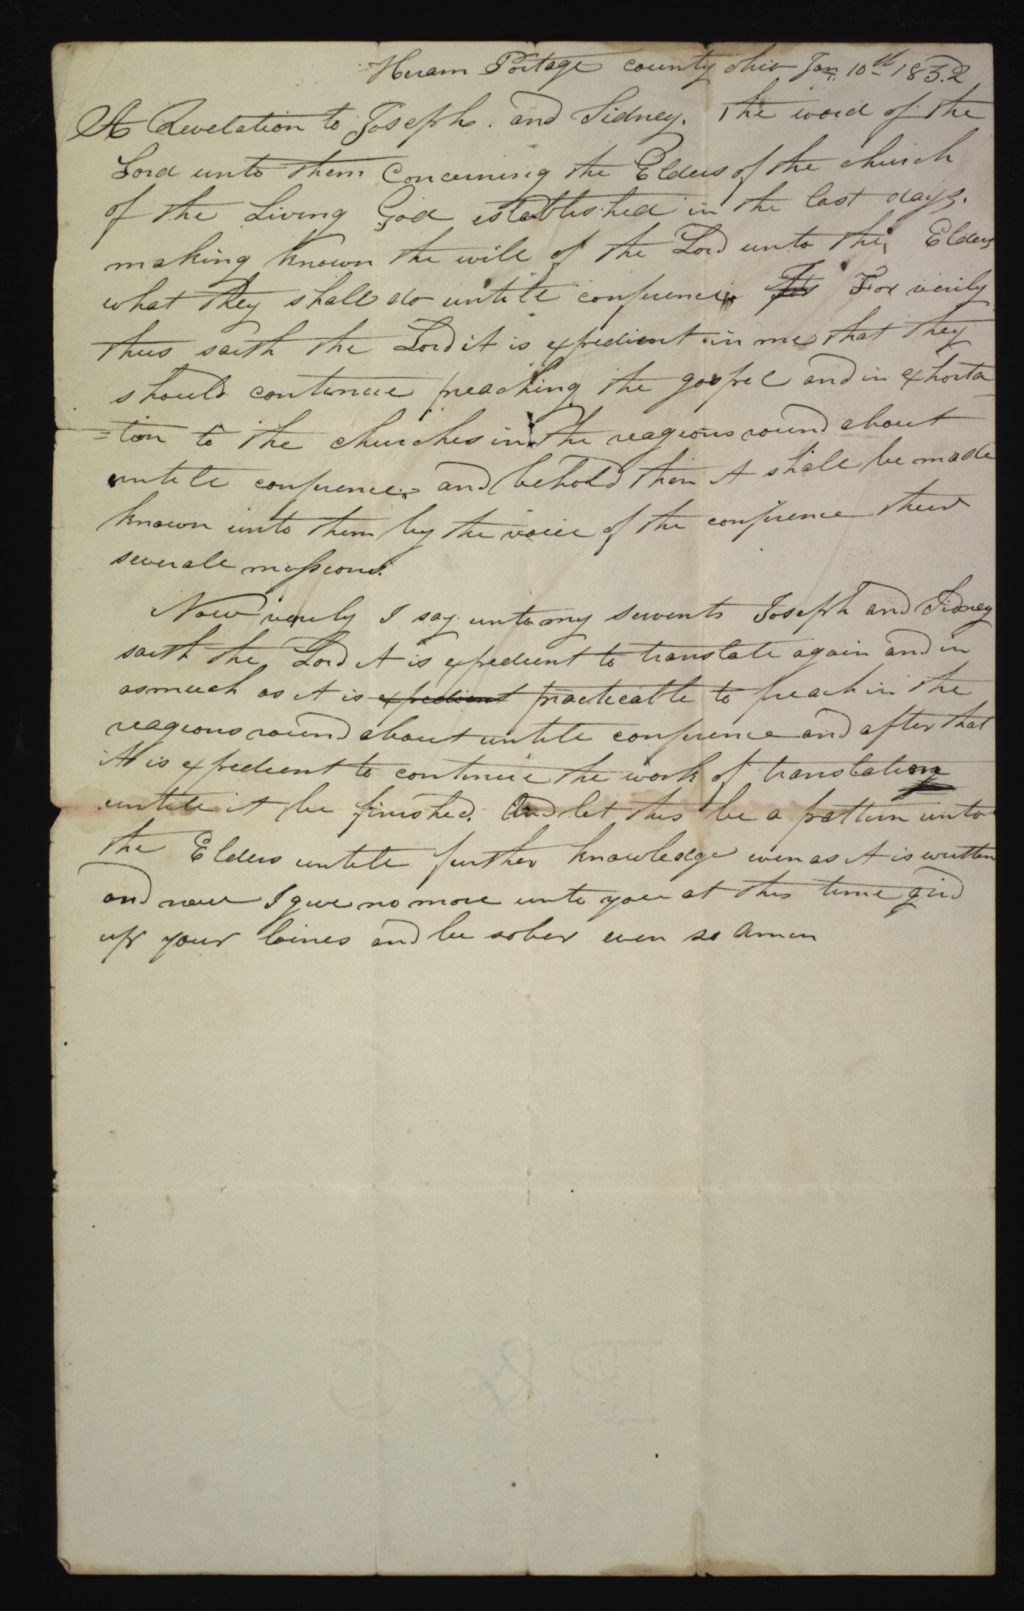 Hiram Portage county Ohio Jan. 10th 1832
A Revelation to Joseph. and Sidney. The word of the
Lord unto them concerning the Elders of the church
of the Living God established in the last days.
making known the will of the Lord unto the, Elders
what they shall do untill conference For verily
thus saith the Lord it is expedient in me that they
should continue preaching the gospel and in exhorta
=tion to the churches in the reagions round about
untill conference and behold then it shall be made
known unto them by the voice of the conference their
severale missions.
Now verily I say unto my servents Joseph and Sidney
saith the Lord it is expedient to translate again and in
asmuch as it is expedient practicable to preach in the
reagions round about untill conference and after that
it is expedient to continue the work of translation
untill it be finished. And let this be a pattern unto
the Elders untill further knowledge even as it is written
and now I give no more unto you at this time gird
up your loines and be sober even so amen
D & C